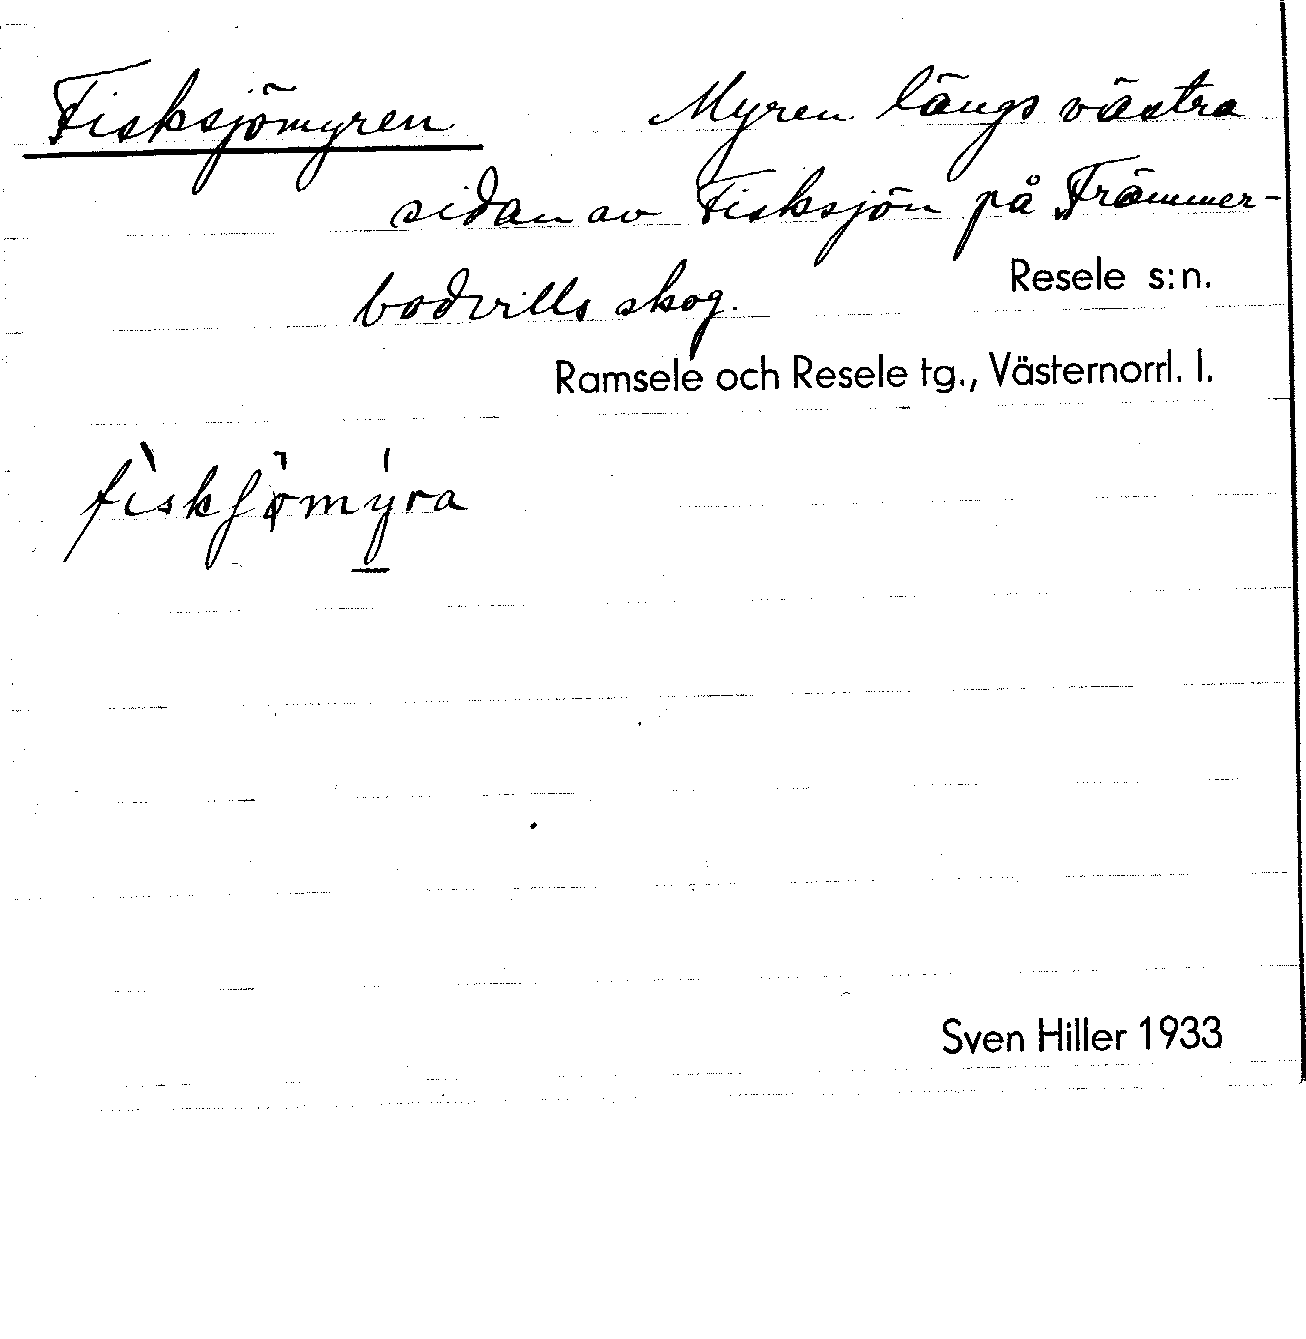 Fisksjömyren Myren längs västra
sidan av Fisksjön på Främmer-
bodvills skog.
Resele s:n.
Ramsele och Resele tg., Västernorrl. l.
Sven Hiller 1933